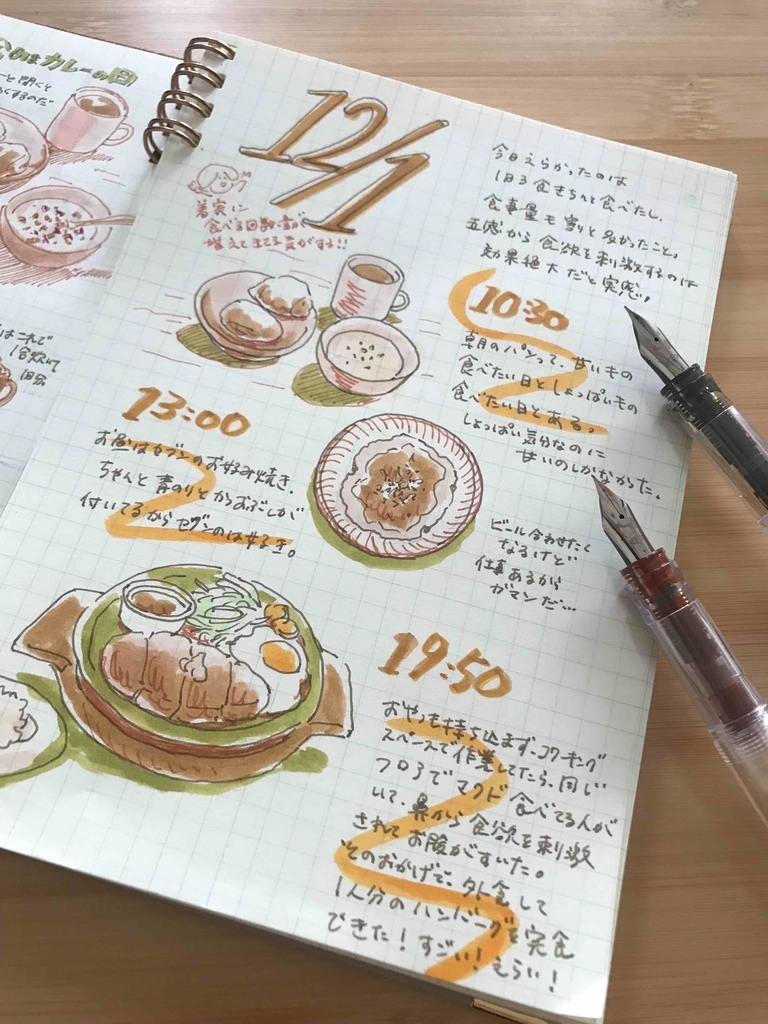 はカレーの日
12/1
着実に
食べる回数・量が
増えてきてる気がする!!
今日えらかったのは
1日3食きちんと食べたし、
食事量も割と多かったこと。
五感から食欲を刺激するのは
効果絶大だと実感。
10:30
朝のパンって、甘いもの
食べたい日としょっぱいもの
食べたい日とある。
しょっぱい気分なのに
甘いのしかなかった。
13:00
お昼はセブンのお好み焼き。
ちゃんと青のりとかおぶしが
付いてるからセブンのは好き。
ビール合わせたく
なるけど
仕事あるから
ガマンだ…
19:50
おやつも持ち込まず、コワーキング
スペースで作業してたら、同じ
フロアでマクド食べてる人が
いて、鼻から食欲を刺激
されてお腹がすいた。
そのおかげで、外食して
1人分のハンバーグを完食
できた!すごい!えらい!